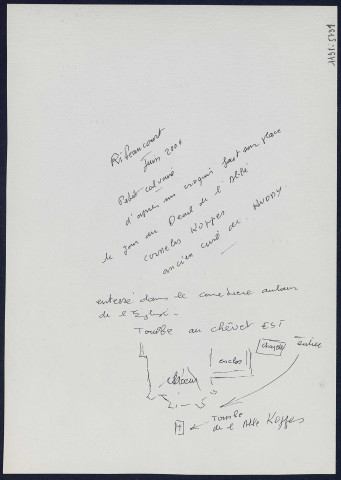 Ribeaucourt
Juin 2004
Petit calvaire
d'après un croquis fait sur place
le jour du Deuil de l'Abbé
Cornelis Koppes
ancien curé de
enterré dans le cimetière autour
de l'Eglise.
Tombe au chevet EST
choeur
enclos
chapelle
entrée
Tombe
de l'Abbé Koppes